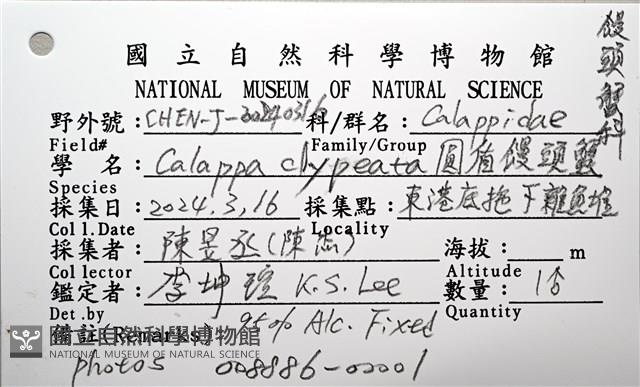 國立自然科學博物館
NATIONAL MUSEUM OF NATURAL SCIENCE
饅頭蟹科
野外號：CHEN-J-20240316 科/群名：Calappidae
Field# Family/Group
學 名：Calappa clypeata 圓盾饅頭蟹
Species
採集日：2024.3.16 採集點：東港底拖下雜魚堆
Coll.Date Locality
採集者：陳昱丞(陳杰) 海拔：m
Collector Altitude
鑑定者：李坤瑄 K.S. Lee 數量：1♂
Det.by Quantity
備註(Remarks) 95% Alc. Fixed
國立自然科學博物館
NATIONAL MUSEUM OF NATURAL SCIENCE
photos 008886-00001